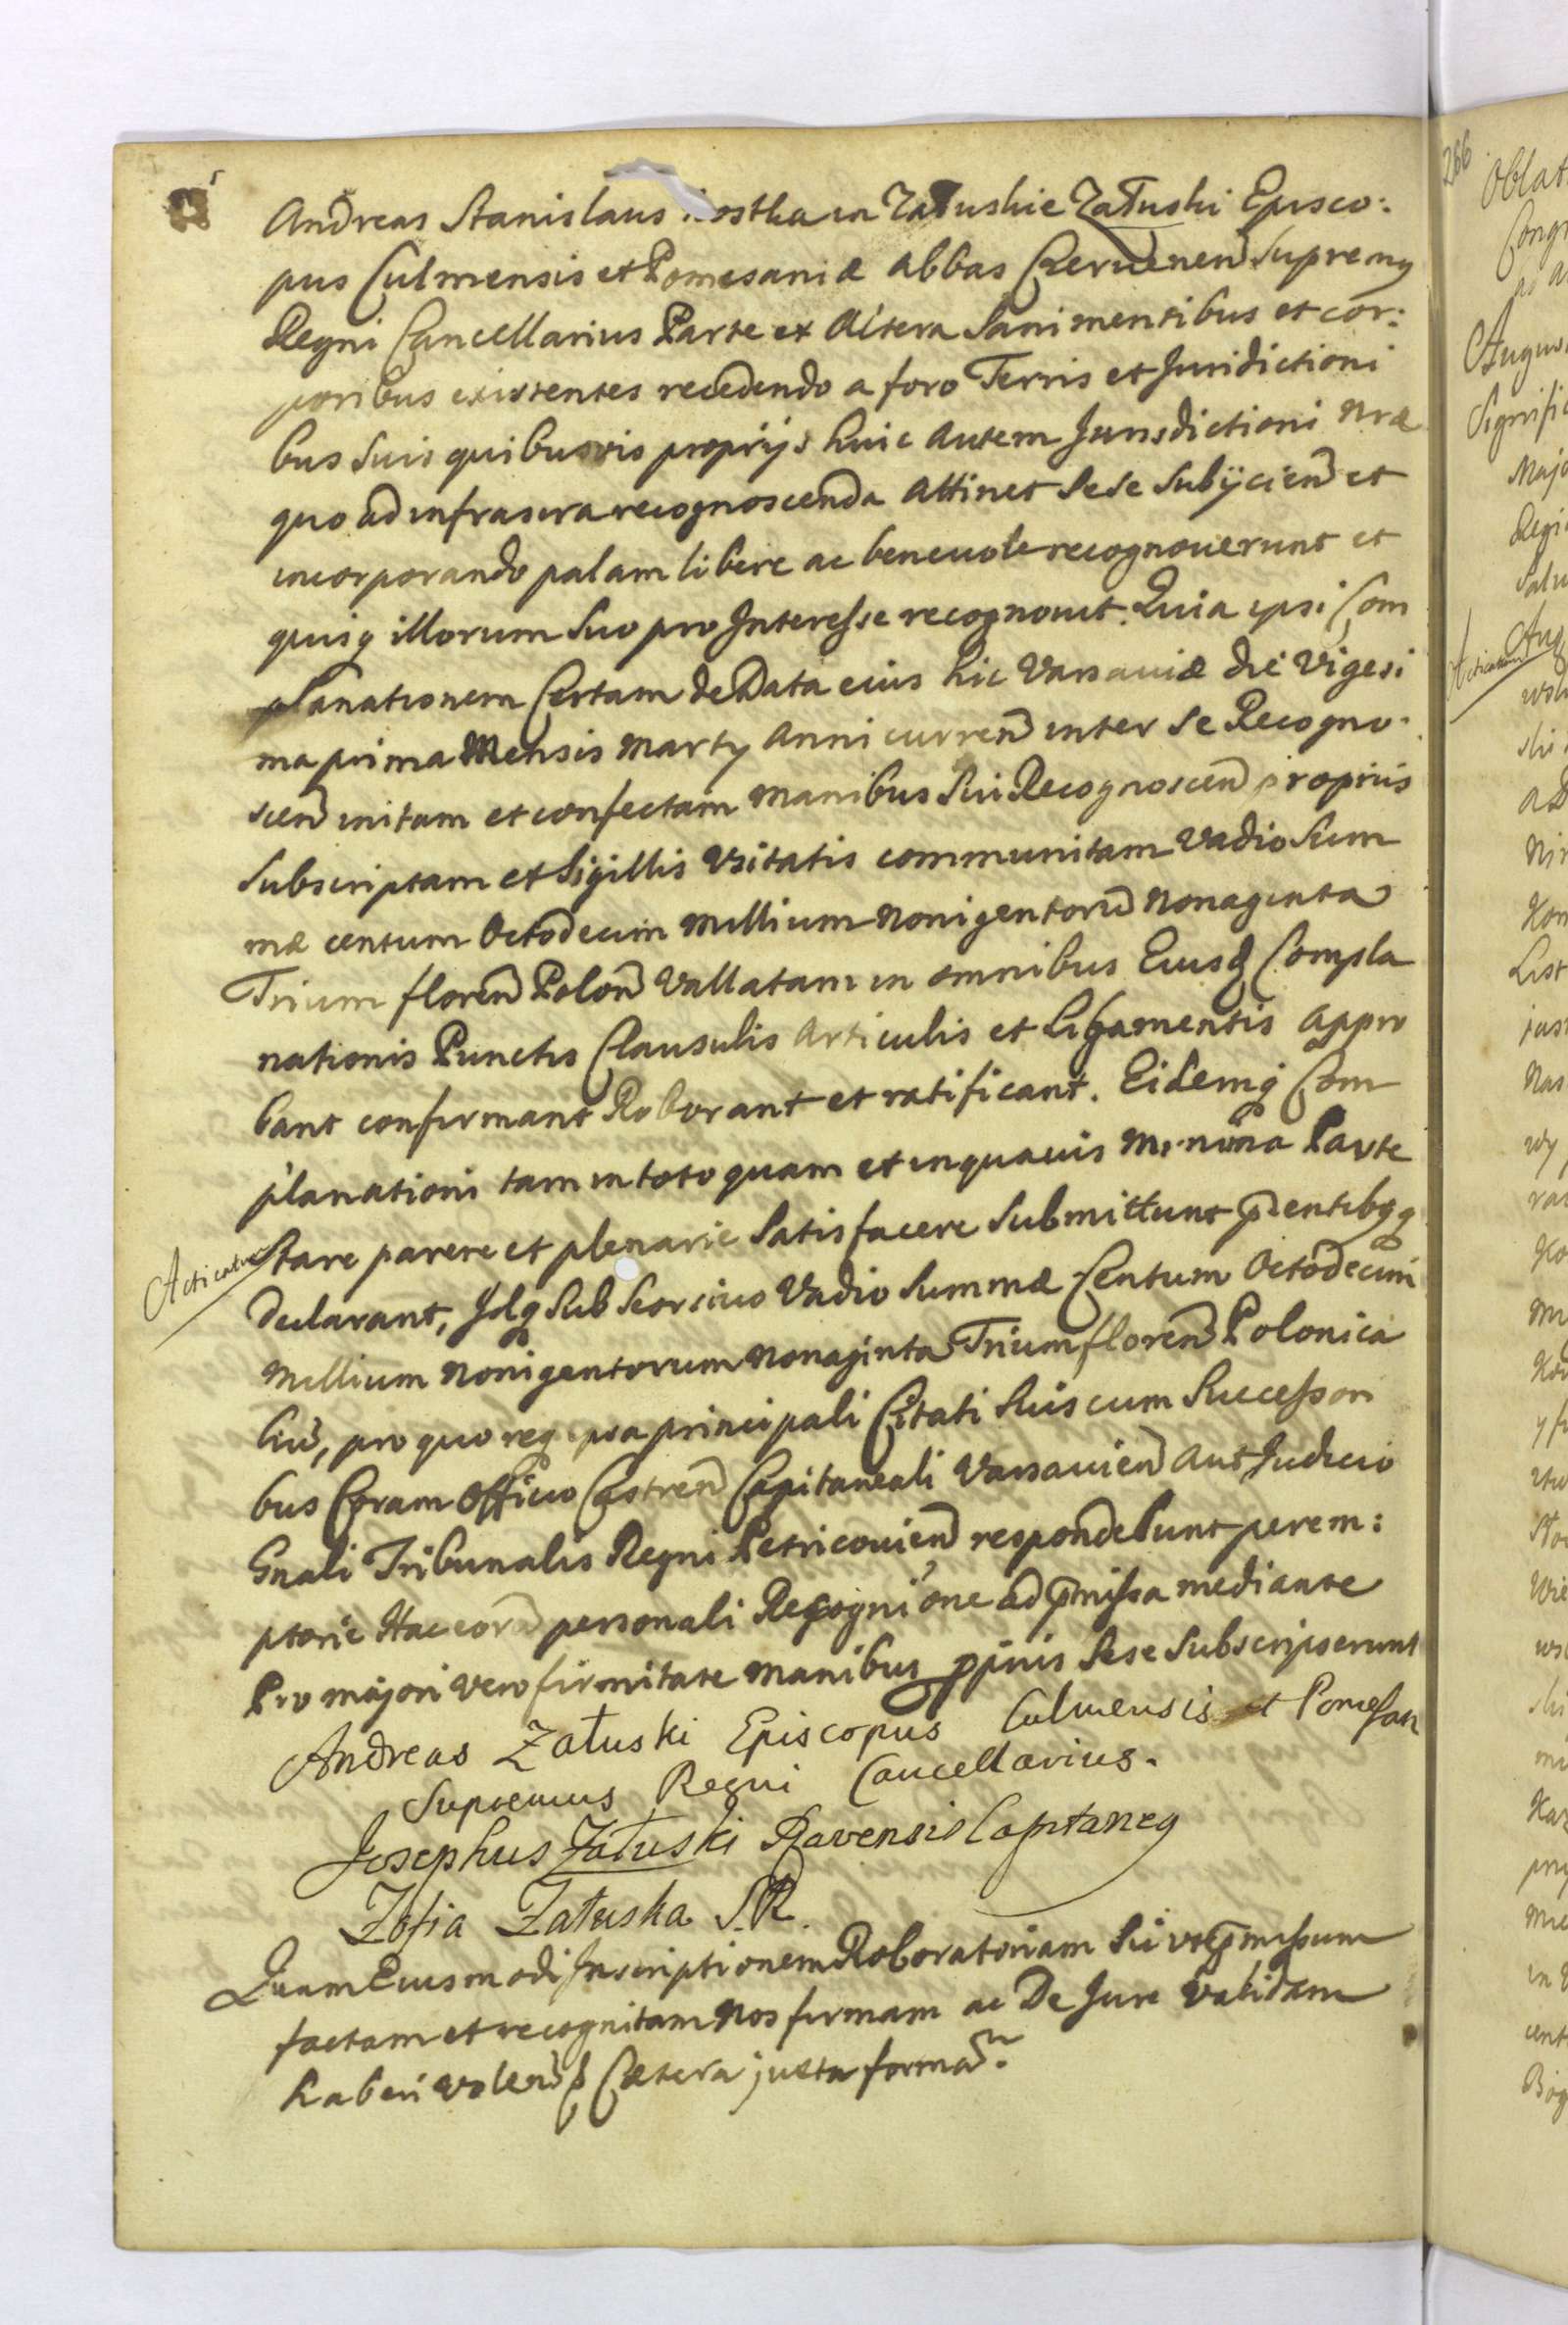 Andreas Stanislaus Kostka in Załuskie Załuski Episco:
pus Culmensis et Pomesaniæ Abbas Czeruenen Supremg
Regni Cancellarius Parte ex Altera Sani mentibus et cor:
poribus existentes recedendo a foro Terris et Juridictioni
bus suis quibusvis proprijs huic autem Jurisdictioni nræ
quo ad infrascra recognoscenda attinet sese subijcien et
incorporando palam libere ac beneuole recognouerunt et
quisq illorum suo pro Interesse recognouit. Quia ipsi Com
planationem Certam de Data eius hic Varsauiæ die Vigesi
ma prima Mensis Marty Anni curren inter se Recogno:
scen initam et confectam manibus sui Recognoscen proprijs
Subscriptam et Sigillis Vsitatis communitam Vadio Sum
mæ centum Octodecim Millium Nonigentoru Nonaginta
Trium floren Polon Vallatam in omnibus Eiusd Compla
nationis Punctis Clausulis Articulis et Ligamentis appro
bant confirmant Roborant et ratificant. Eidemq Com
planationi tam in toto quam et in quauis Minima Parte
Acticatu
Stare parere et plenarie Satisfacere Submittunt pntibgq
Declarant, Idq Sub Seorsiuo Vadio Summæ Centum Octodecim
Millium Nonigentorum Nonaginta Trium floren Polonica
liu, pro quo req ipsa principali Citati Suis cum Successori
bus Coram Officio Castren Capitaneali Varsauien Aut Judicio
Gnali Tribunalis Regni Petricouien respondebunt perem:
ptorie Hac cora personali Recognione ad pmissa mediante
Pro majori vero firmitate manibus ppriis Sese Subscripserunt
Andreas Załuski Episcopus Culmensis et Pomesan
Supremus Regni Cancellarius.
Josephus Załuski Ravensis Capitaneg
Zofia Załuska S. R.
Quam Eiusmodi Inscriptionem Roboratoriam Sic vt pmissum
factam et recognitam Nos firmam ac De Jure Validam
haberi volen Cætera juxta forma.
266